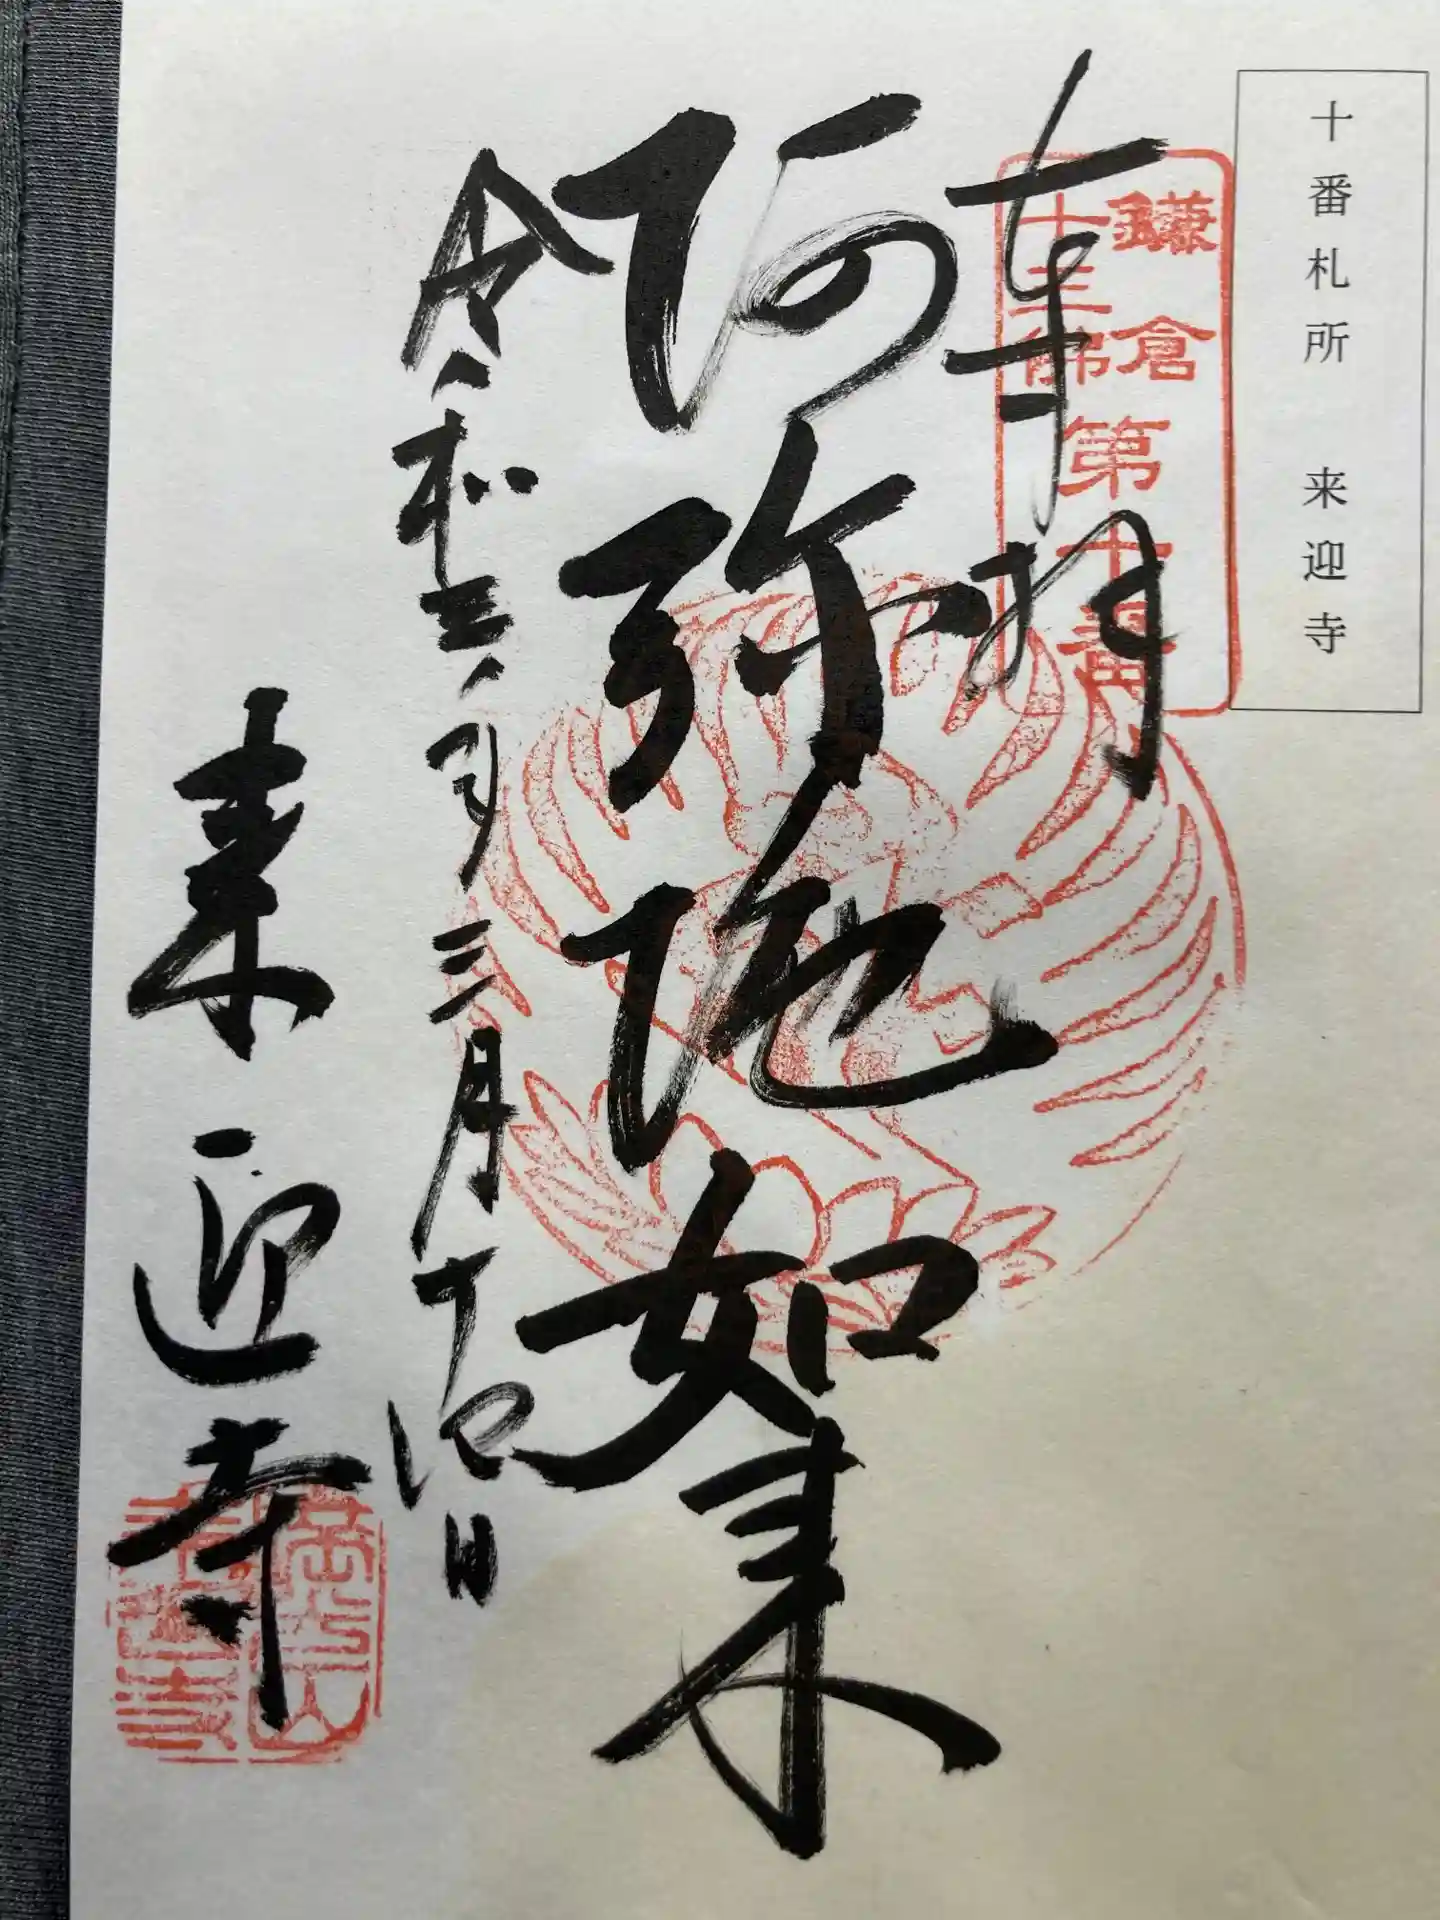 十番札所 来迎寺
鎌倉
十三佛
第十番
奉拝
阿弥陀如来
令和三年三月十四日
来迎寺